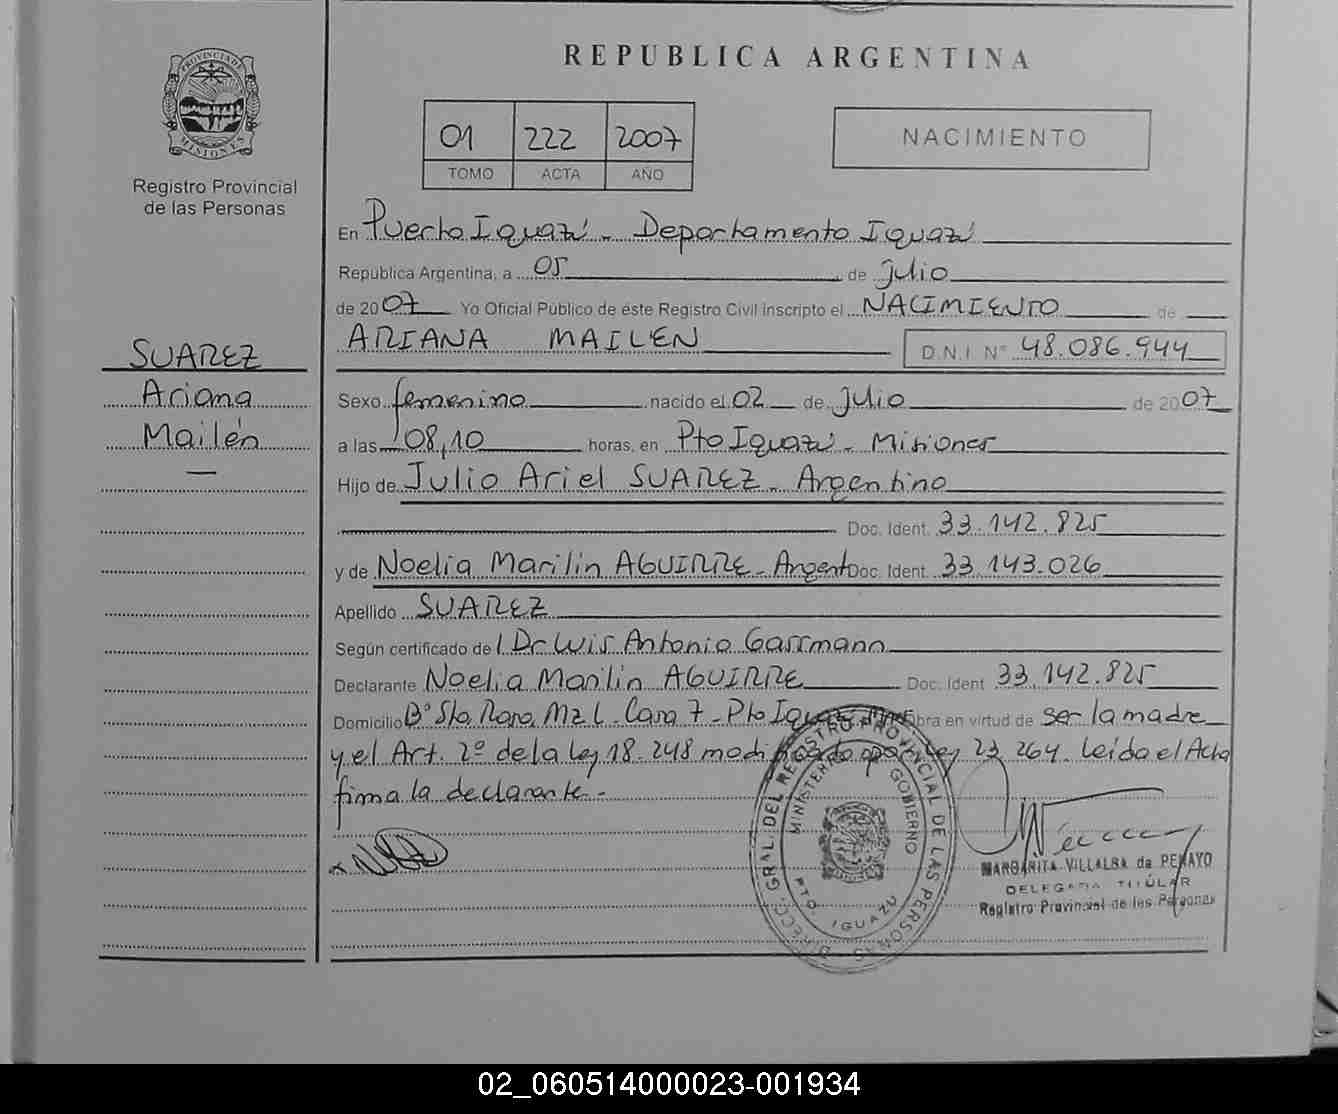 REPUBLICA ARGENTINA
PROVINCIA DE MISIONES
Registro Provincial
de las Personas
01 222 2007
TOMO ACTA AÑO
NACIMIENTO
En Puerto Iguazú - Departamento Iguazú
Republica Argentina, a 05 de julio
de 2007 Yo Oficial Público de éste Registro Civil inscripto el NACIMIENTO de
ARIANA MAILEN D.N.I. N° 48.086.944
SUAREZ
Ariana
Mailén
Sexo femenino nacido el 02 de julio de 2007
a las 08,10 horas, en Pto Iguazú - Misiones
Hijo de Julio Ariel SUAREZ - Argentino
Doc. Ident. 33.142.825
y de Noelia Marilin AGUIRRE - Argent Doc. Ident. 33.143.026
Apellido SUAREZ
Según certificado de l Dr Luis Antonio Gassmann
Declarante Noelia Marilin AGUIRRE Doc. Ident 33.142.825
Domicilio B° Sta. Rosa Mz L - Casa 7 - Pto Iguazú Obra en virtud de ser la madre
y el Art. 2º de la Ley 18.248 modificado por Ley 23.264. Leída el Acta
firma la declarante.-
DIRECC. GRAL. DEL REGISTRO PROVINCIAL DE LAS PERSONAS
MINISTERIO GOBIERNO
PTO. IGUAZU
MARGARITA VILLALBA de PENAYO
DELEGADA TITULAR
Registro Provincial de las Personas
02_060514000023-001934